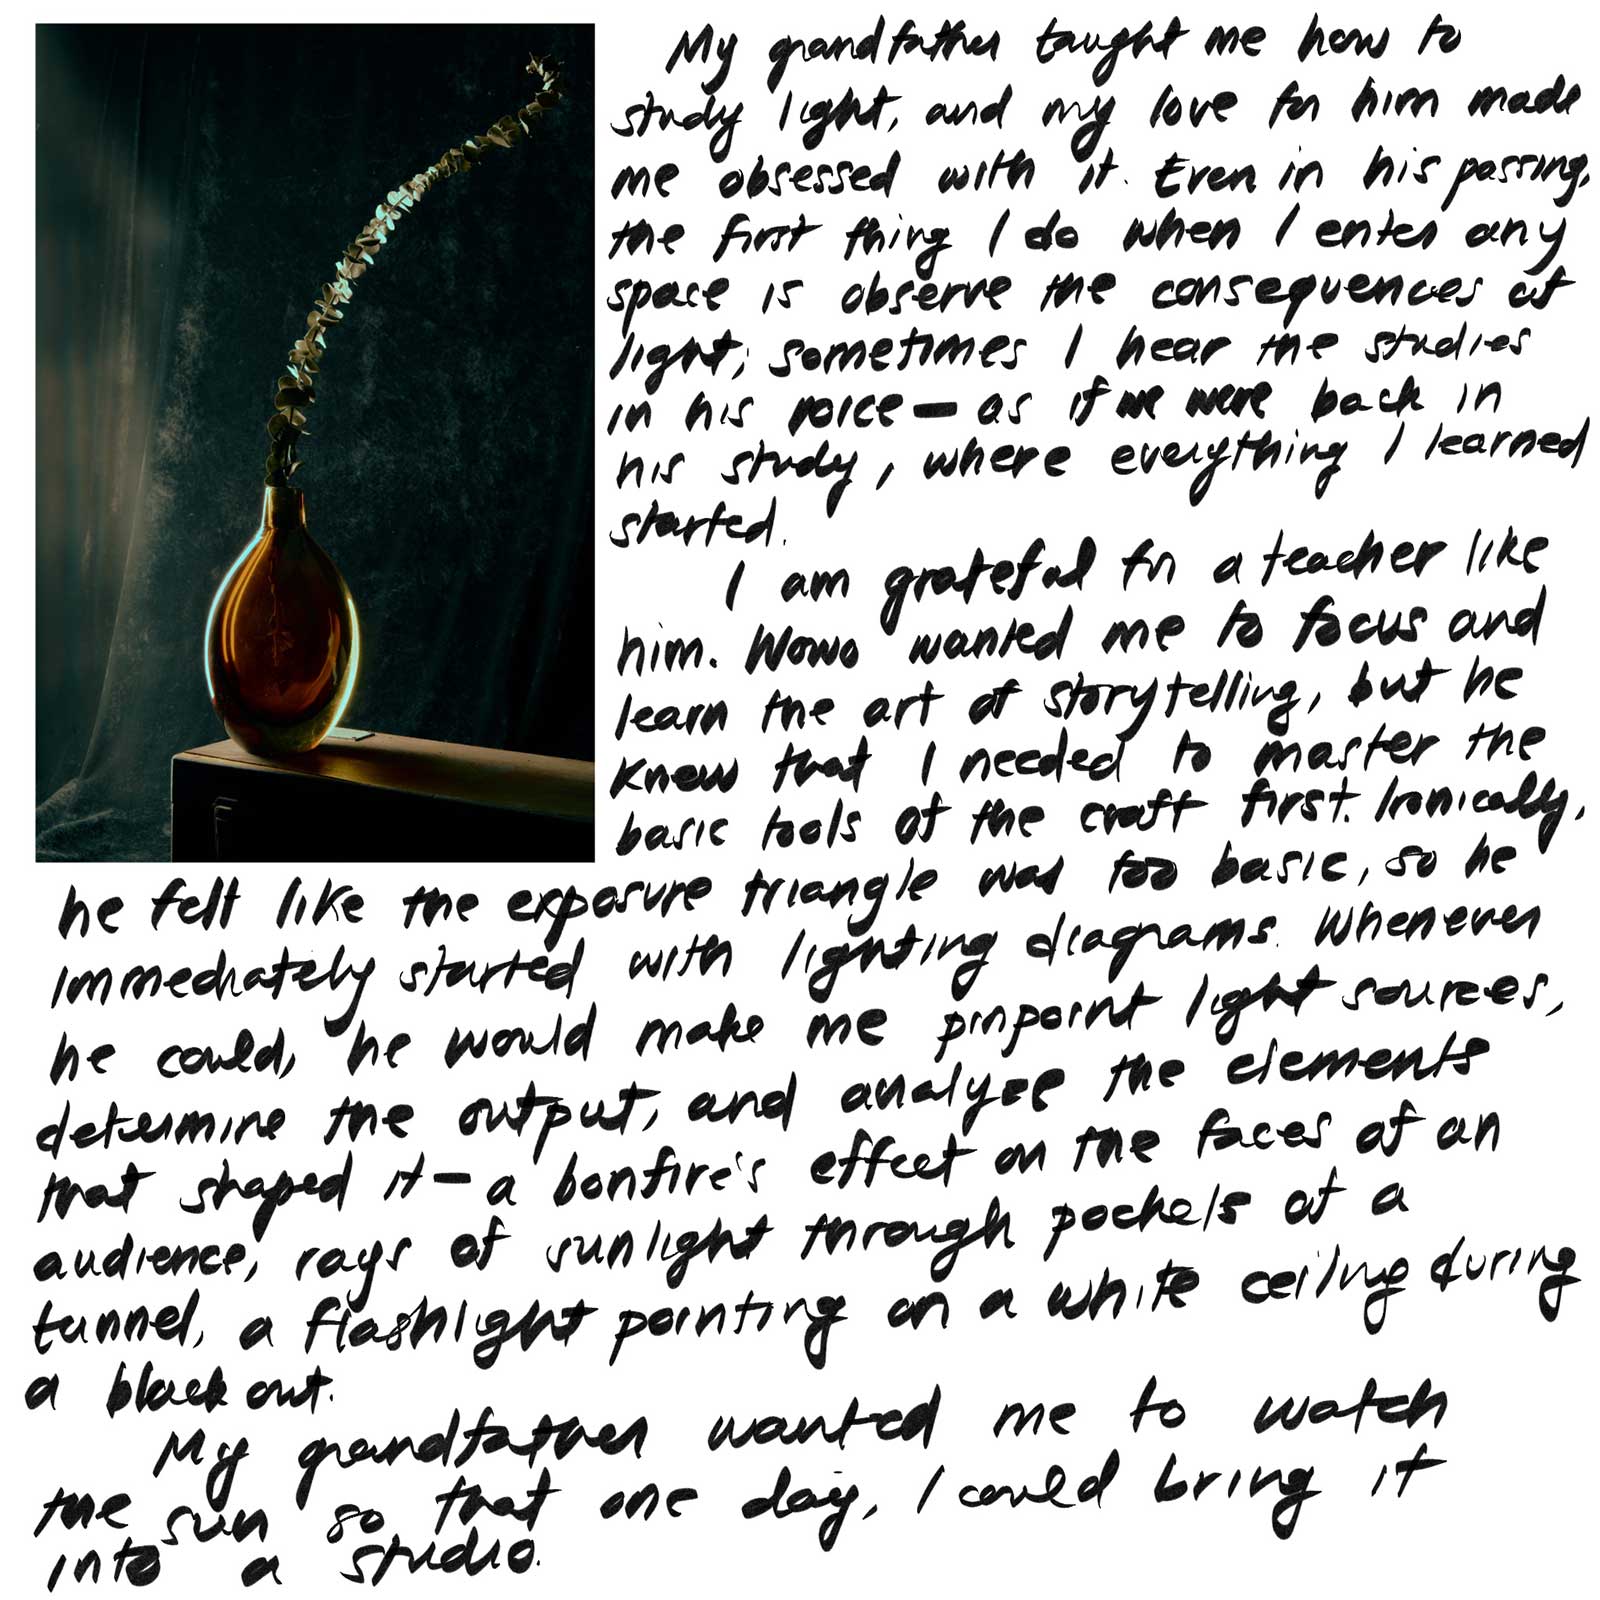 My grandfather taught me how to
study light, and my love for him made
me obsessed with it. Even in his passing,
the first thing I do when I enter any
space is observe the consequences of
light; sometimes I hear the studies
in his voice — as if we were back in
his study, where everything I learned
started.
I am grateful for a teacher like
him. Wowo wanted me to focus and
learn the art of storytelling, but he
knew that I needed to master the
basic tools of the craft first. Ironically,
he felt like the exposure triangle was too basic, so he
immediately started with lighting diagrams. Whenever
he could, he would make me pinpoint light sources,
determine the output, and analyze the elements
that shaped it — a bonfire's effect on the faces of an
audience, rays of sunlight through pockets of a
tunnel, a flashlight pointing on a white ceiling during
a black out.
My grandfather wanted me to watch
the sun so that one day, I could bring it
into a studio.